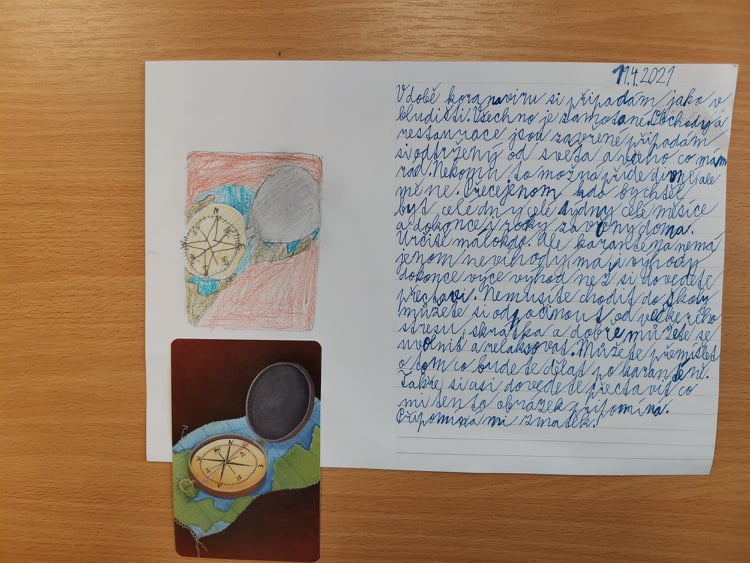 11.4.2021
V době koranaviru si připadám jako v
bludišti. Všechno je zamotané. Obchody a
restaurace jsou zavřené připadám
si odtržený od světa a všeho co mám
rád. Nekomu to možná přide divný ale
mě ne. Přecejenom kdo by chtěl
být celé dny celé týdny celé měsíce
a dokonce i roky zavřený doma.
Určitě málokdo. Ale karanténa nemá
jenom nevíhody má i výhody
dokonce výce výhod než si dovedete
přectavi. Nemusíte chodit do školy
můžete si odpočinout od velkého
stresu, skrátka a dobře můžete se
uvolnit a relaksovat. Můžete přemíšlet
o tom co budete dělat po karanténi.
Takže si asi dovedete přectavit co
mi tento obrázek připomíná.
Připomíná mi zmatek!
N
E
S
W